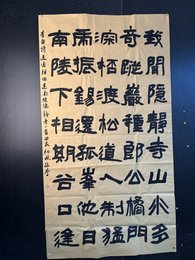 我聞隱靜寺山水多
奇蹤巖種朗公橘門
深杯渡松道人制猛
虎振錫還孤峯他日
南陵下相期谷口逢
李白詩送通禪師還南陵隱靜寺